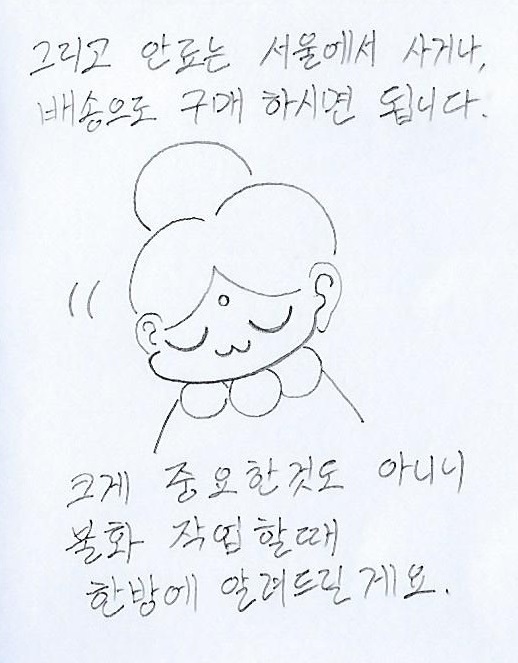 그리고 안료는 서울에서 사거나,
배송으로 구매 하시면 됩니다.
크게 중요한것도 아니니
불화 작업할때
한방에 알려드릴게요.